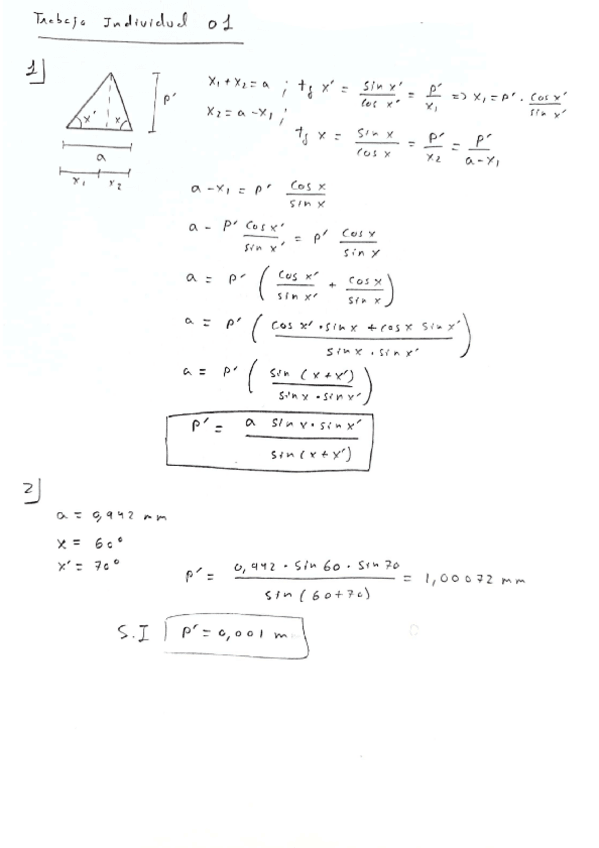 Trabajo Individual 01
1)
x₁ + x₂ = a ; tg x' = sin x' / cos x' = p' / x₁ => x₁ = p' · cos x' / sin x'
x₂ = a - x₁ ;
tg x = sin x / cos x = p' / x₂ = p' / a - x₁
p'
x' x
a
x₁ x₂
a - x₁ = p' cos x / sin x
a - p' cos x' / sin x' = p' cos x / sin x
a = p' ( cos x' / sin x' + cos x / sin x )
a = p' ( cos x' · sin x + cos x sin x' / sin x · sin x' )
a = p' ( sin (x + x') / sin x · sin x' )
p' = a sin x · sin x' / sin (x + x')
2)
a = 0,942 mm
x = 60°
x' = 70°
p' = 0,942 · sin 60 · sin 70 / sin (60 + 70) = 1,00072 mm
S.I p' = 0,001 m